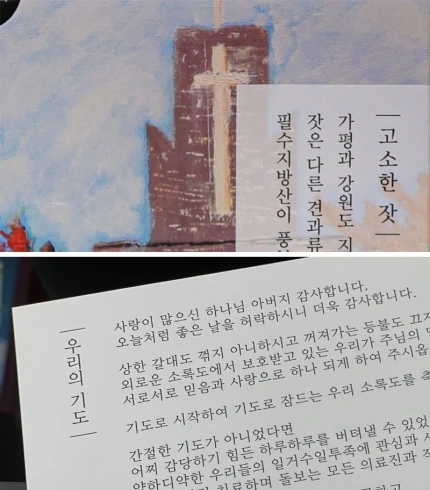 고소한 잣
가평과 강원도 지
잣은 다른 견과류
필수지방산이 풍
우리의 기도
사랑이 많으신 하나님 아버지 감사합니다.
오늘처럼 좋은 날을 허락하시니 더욱 감사합니다.
상한 갈대도 꺾지 아니하시고 꺼져가는 등불도 끄지
외로운 소록도에서 보호받고 있는 우리가 주님의
서로서로 믿음과 사랑으로 하나 되게 하여 주시옵
기도로 시작하여 기도로 잠드는 우리 소록도를 축
간절한 기도가 아니었다면
어찌 감당하기 힘든 하루하루를 버텨낼 수 있었
약하디약한 우리들의 일거수일투족에 관심과 사
치료하며 돌보는 모든 의료진과